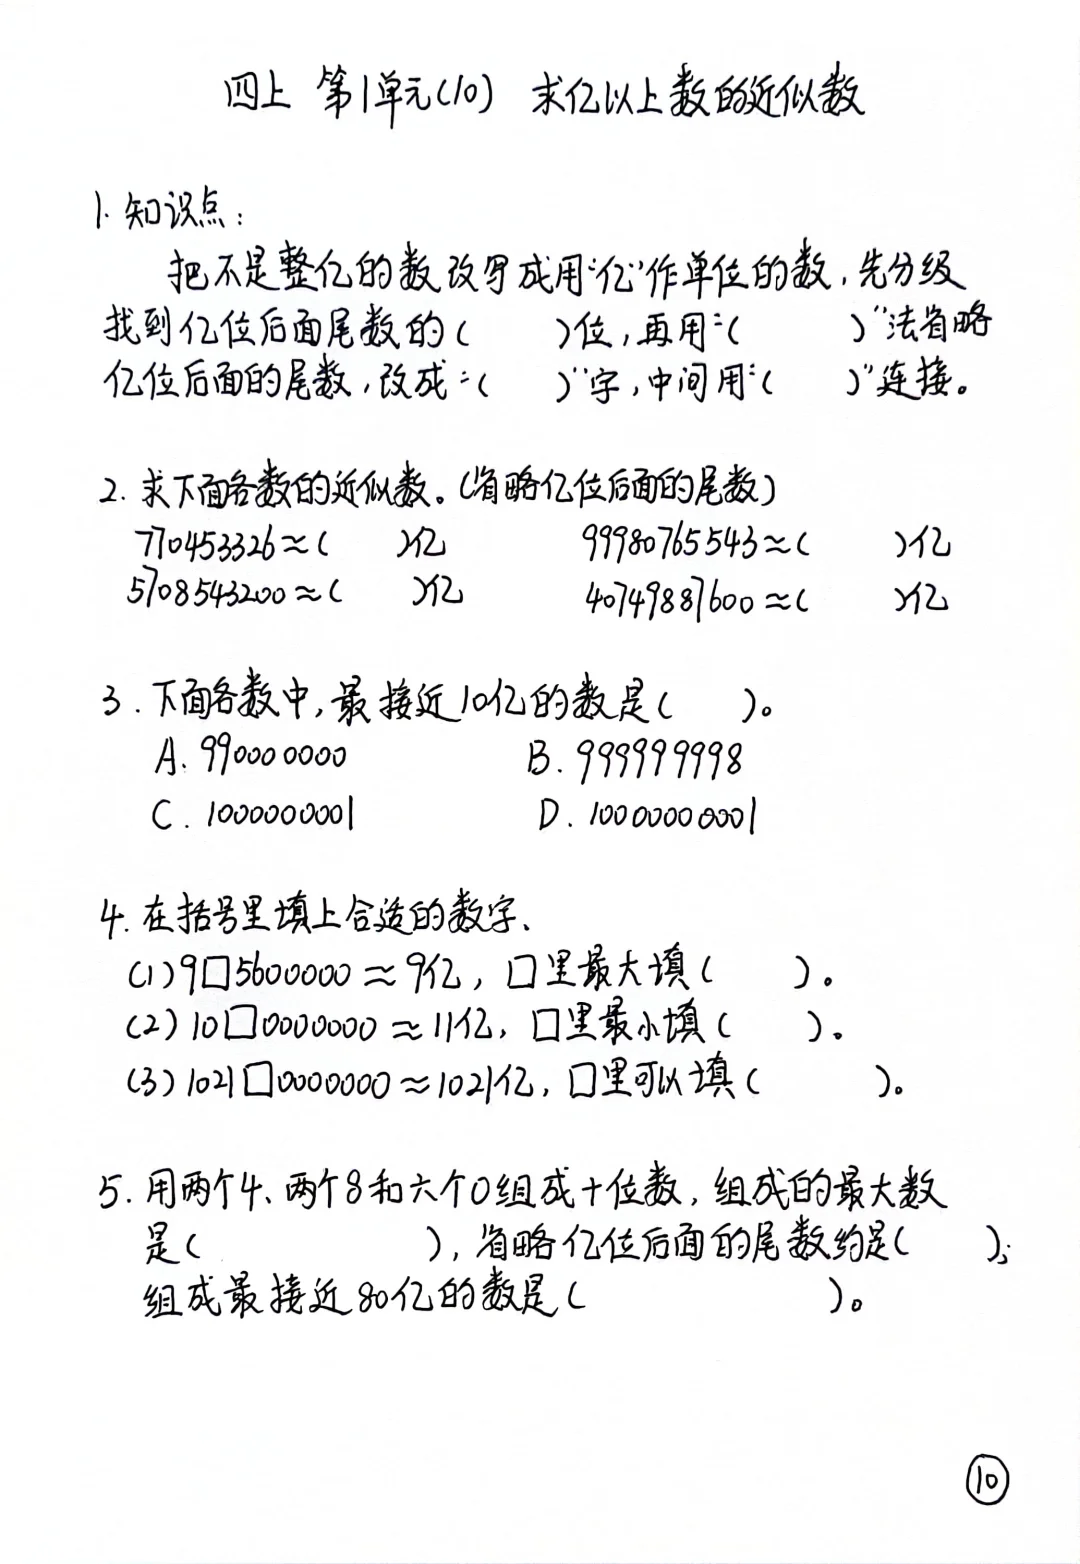 四上 第1单元(10) 求亿以上数的近似数
1.知识点:
把不是整亿的数改写成用“亿”作单位的数,先分级
找到亿位后面尾数的( )位,再用“( )”法省略
亿位后面的尾数,改成“( )”字,中间用“( )”连接。
2.求下面各数的近似数。(省略亿位后面的尾数)
770453326≈( )亿 99980765543≈( )亿
5708543200≈( )亿 40749887600≈( )亿
3.下面各数中,最接近10亿的数是( )。
A.990000000 B.999999998
C.1000000001 D.10000000001
4.在括号里填上合适的数字、
(1)9□5600000≈9亿,□里最大填( )。
(2)10□0000000≈11亿,□里最小填( )。
(3)1021□0000000≈1021亿,□里可以填( )。
5.用两个4、两个8和六个0组成十位数,组成的最大数
是( ),省略亿位后面的尾数约是( );
组成最接近80亿的数是( )。
10